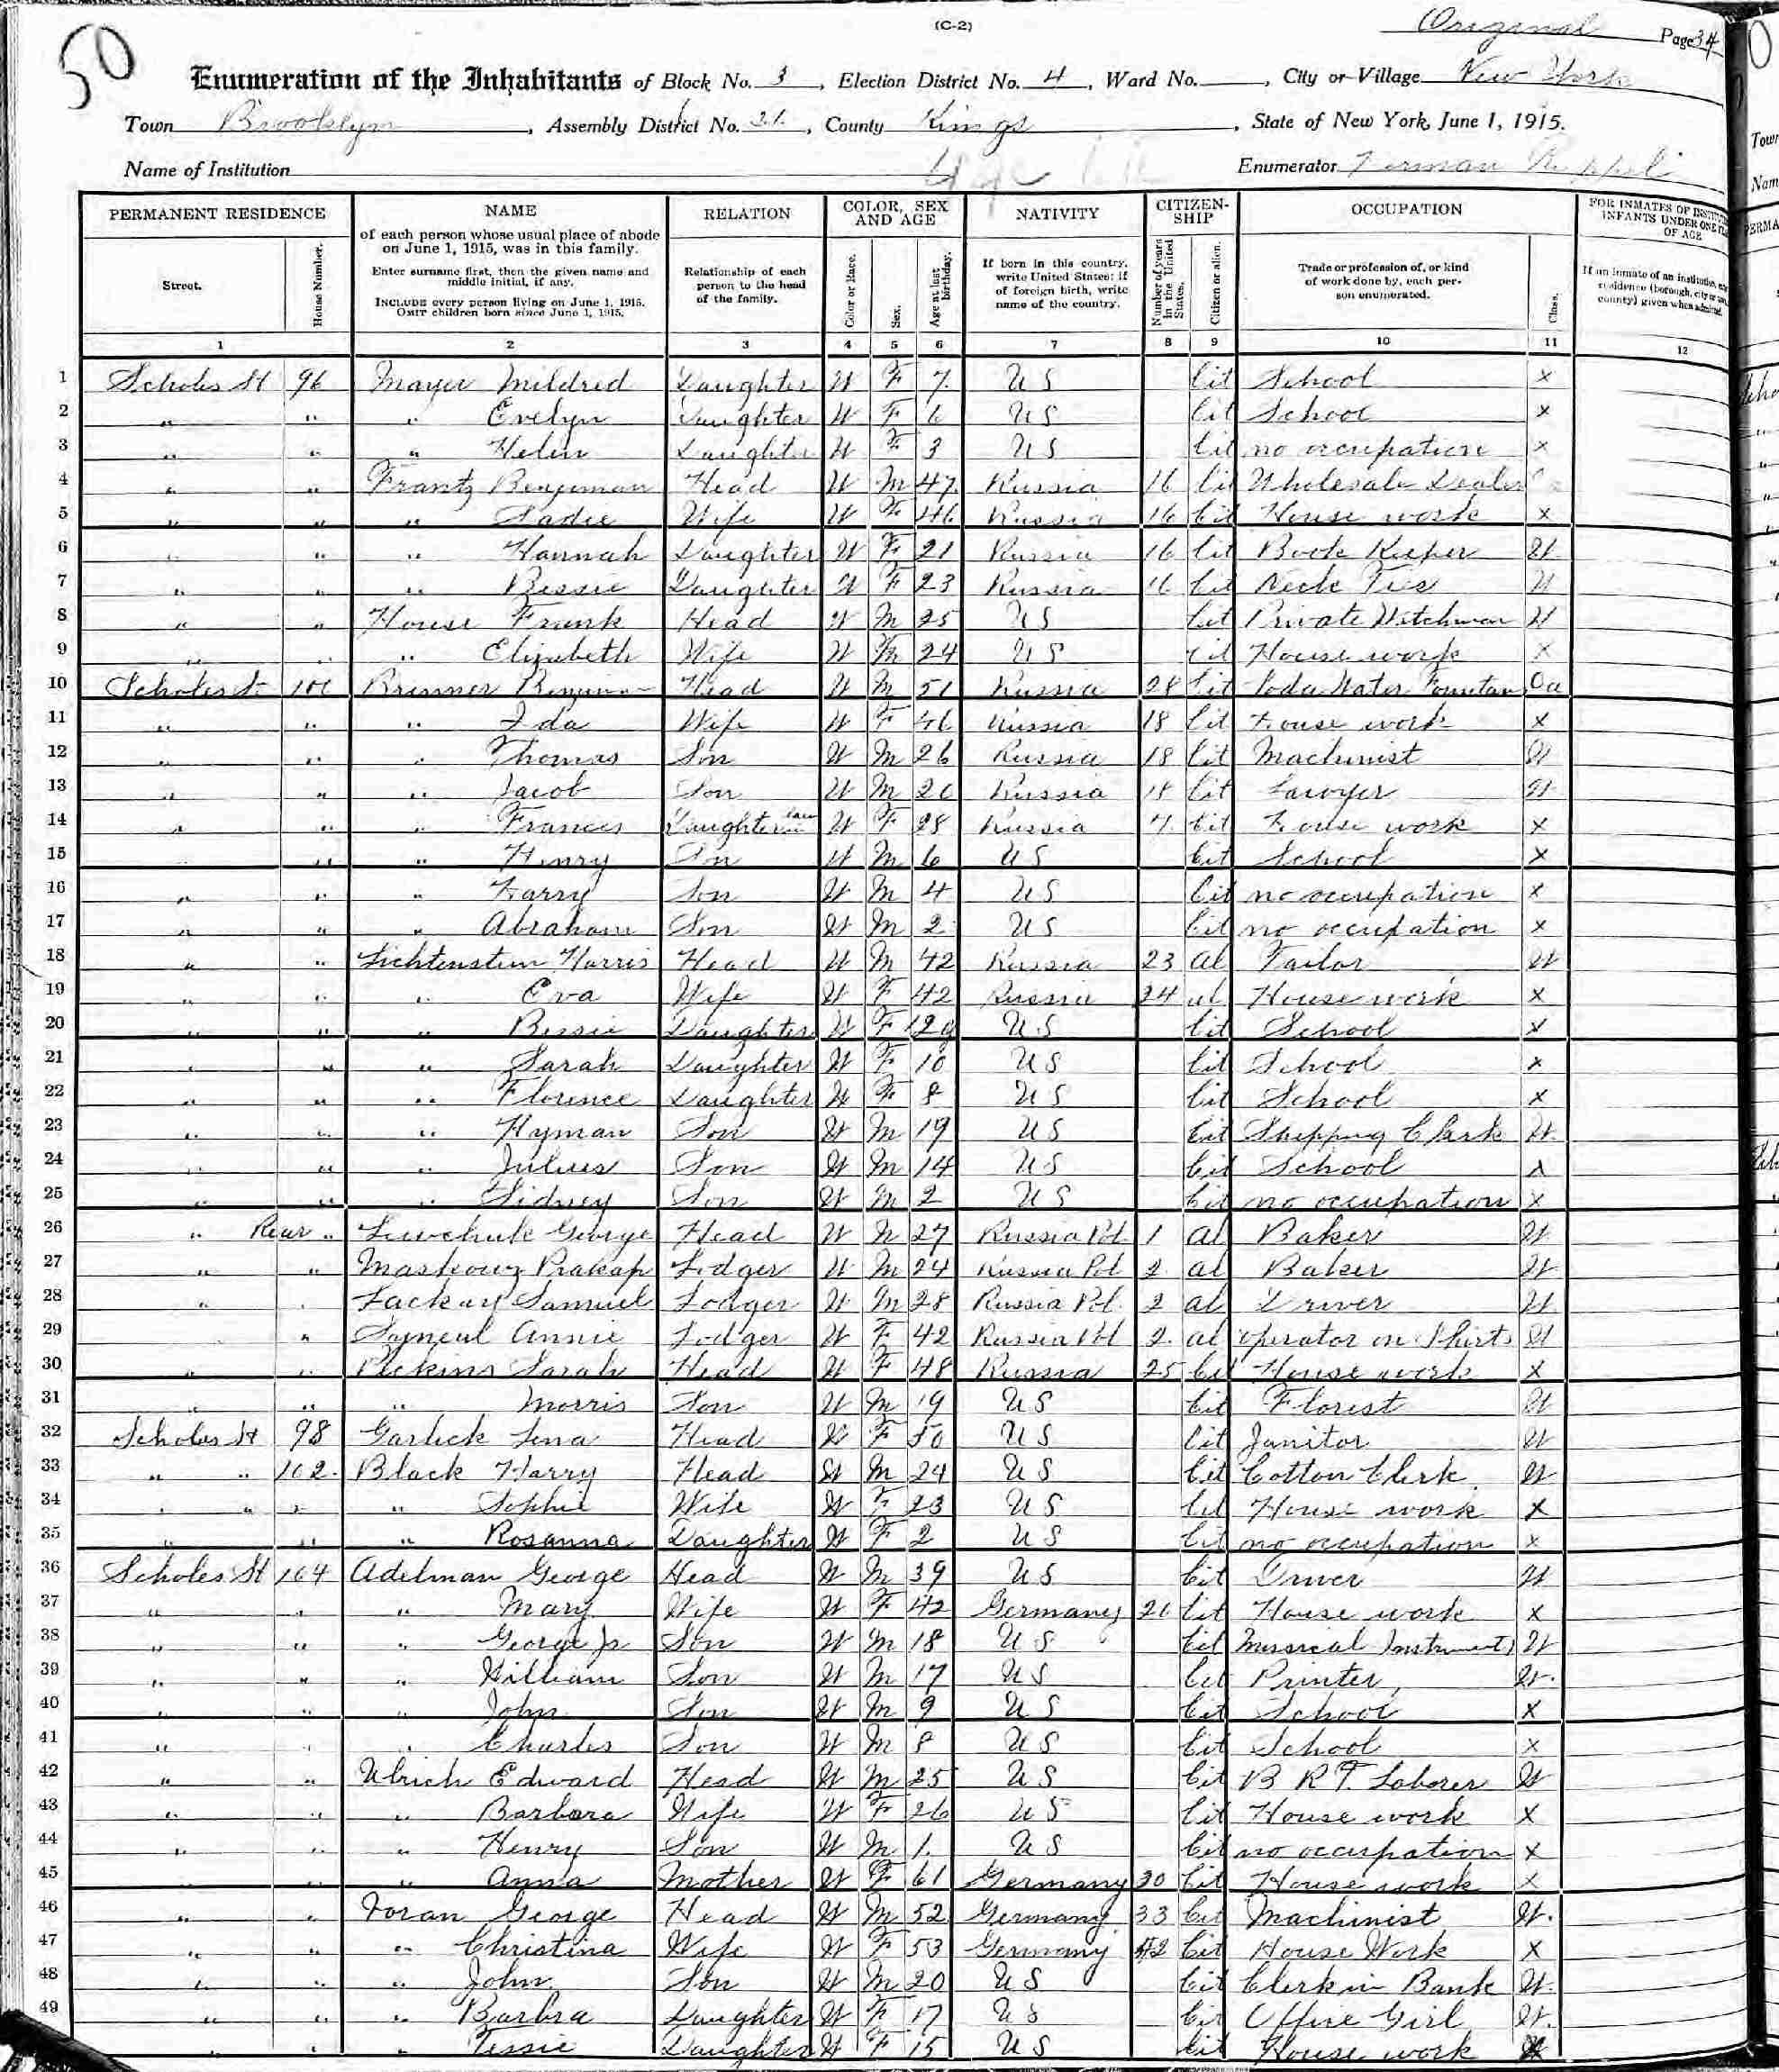 50
(C-2)
Original Page 34
Enumeration of the Inhabitants of Block No. 3, Election District No. 4, Ward No. , City or Village New York
Town Brooklyn, Assembly District No. 21, County Kings, State of New York, June 1, 1915.
Name of Institution Enumerator
PERMANENT RESIDENCE NAME RELATION COLOR, SEX AND AGE NATIVITY CITIZENSHIP OCCUPATION FOR INMATES OF
INFANTS UNDER ONE
OF AGE
Street. House Number. of each person whose usual place of abode on June 1, 1915, was in this family. Enter surname first, then the given name and middle initial, if any. INCLUDE every person living on June 1, 1915. OMIT children born since June 1, 1915. Relationship of each person to the head of the family. Color or Race. Sex. Age at last birthday. If born in this country, write United States; if of foreign birth, write name of the country. Number of years in the United States. Citizen or alien. Trade or profession of, or kind of work done by, each person enumerated. Class. If an inmate of an institution, residence (borough, city or county) given when admitted.
1 2 3 4 5 6 7 8 9 10 11 12
1 Scholes St 96 Mayer Mildred Daughter W F 7 US Cit School x
2 " " " Evelyn Daughter W F 6 US Cit School x
3 " " " Helen Daughter W F 3 US Cit no occupation x
4 " " Frantz Benjeman Head W M 47 Russia 16 Cit Wholesale Dealer
5 " " " Sadie Wife W F 46 Russia 16 Cit House work x
6 " " " Hannah Daughter W F 21 Russia 16 Cit Book Keeper W
7 " " " Bessie Daughter W F 23 Russia 16 Cit Neck Ties W
8 " " House Frank Head W M 25 US Cit Private Watchman W
9 " " " Elizabeth Wife W 24 US Cit House work x
10 Scholes St 100 Brenner Head W M 51 Russia 28 Cit Soda Water Fountain Oa
11 " " " Ida Wife W F 46 Russia 18 Cit House work x
12 " " " Thomas Son W M 26 Russia 18 Cit Machinist W
13 " " " Jacob Son W M 20 Russia 18 Cit Lawyer W
14 " " " Frances Daughter in law W F 28 Russia 7 Cit House work x
15 " " " Henry Son W M 6 US Cit School x
16 " " " Harry Son W M 4 US Cit no occupation x
17 " " " Abraham Son W M 2 US Cit no occupation x
18 " " Lichtenstein Harris Head W M 42 Russia 23 al Tailor W
19 " " " Eva Wife W F 42 Russia 24 al House work x
20 " " " Bessie Daughter W F US Cit School x
21 " " " Sarah Daughter W F 10 US Cit School x
22 " " " Florence Daughter W F 8 US Cit School x
23 " " " Hyman Son W M 19 US Cit Shipping Clerk W
24 " " " Julius Son W M 14 US Cit School x
25 " " " Sidney Son W M 2 US Cit no occupation x
26 " Rear " George Head W M 27 Russia Pol 1 al Baker W
27 " " Lodger W M 24 Russia Pol 2 al Baker W
28 " " Samuel Lodger W M 28 Russia Pol. 2 al Driver W
29 " Annie Lodger W F 42 Russia Pol 2 al operator on Shirts W
30 " " Sarah Head W F 48 Russia 25 Cit House work x
31 " " " Morris Son W M 19 US Cit Florest W
32 Scholes St 98 Garlick Lena Head W F 50 US Cit Janitor W
33 " " 102 Black Harry Head W M 24 US Cit Cotton Clerk W
34 " " " " Sophie Wife W F 23 US Cit House work x
35 " " " Rosanna Daughter W F 2 US Cit no occupation x
36 Scholes St 104 Adelman George Head W M 39 US Cit Driver W
37 " " " Mary Wife W F 42 Germany 20 Cit House work x
38 " " " George Jr Son W M 18 US Cit Musical Instruments W
39 " " " William Son W M 17 US Cit Printer W
40 " " " John Son W M 9 US Cit School x
41 " " " Charles Son W M 8 US Cit School x
42 " " Ulrich Edward Head W M 25 US Cit B R T. Laborer W
43 " " " Barbara Wife W F 26 US Cit House work x
44 " " " Henry Son W M 1 US Cit no occupation x
45 " " " Anna Mother W F 61 Germany 30 Cit House work x
46 " " Foran George Head W M 52 Germany 33 Cit Machinist W
47 " " " Christina Wife W F 53 Germany 42 Cit House Work x
48 " " " John Son W M 20 US Cit Clerk in Bank W
49 " " " Barbra Daughter W F 17 US Cit Office Girl W
" " " Tessie Daughter W F 15 US Cit House work